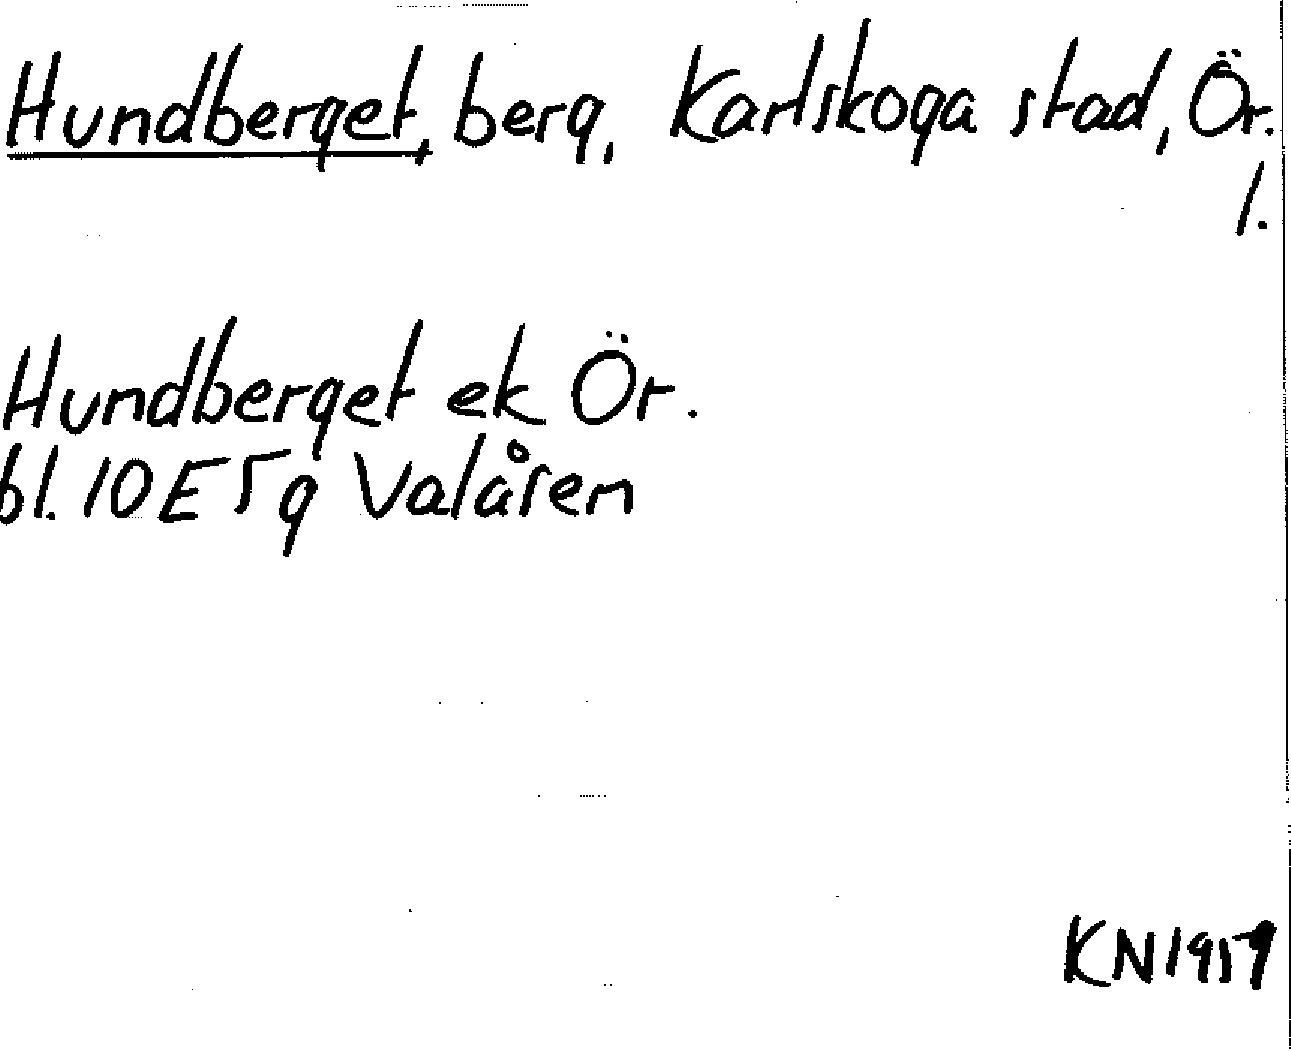 Hundberget, berg, Karlskoga stad, Ör.
1.
Hundberget ek Ör.
bl. 10E5g Valåsen
KN1959